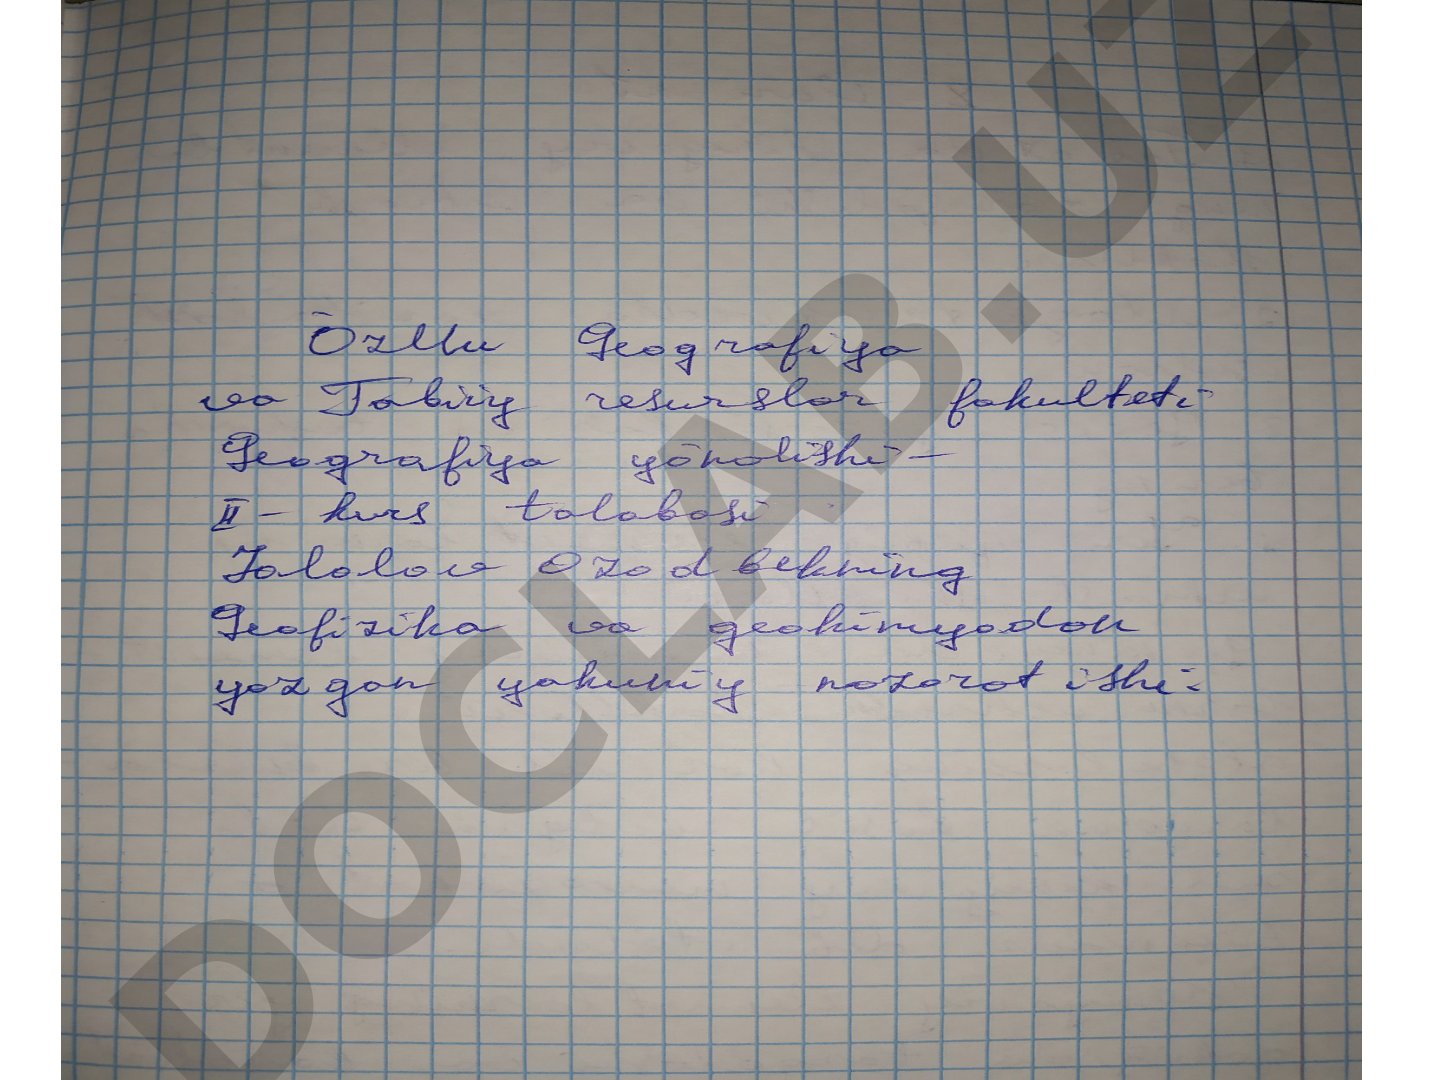 ŌzMu Geografiya
va Tabiiy resurslar fakulteti
Geografiya yōnalishi-
II - kurs talabasi
Jalolov Ozodbekning
Geofizika va geokimyodan
yozgan yakuniy nazorat ishi:
DOCLAB.UZ